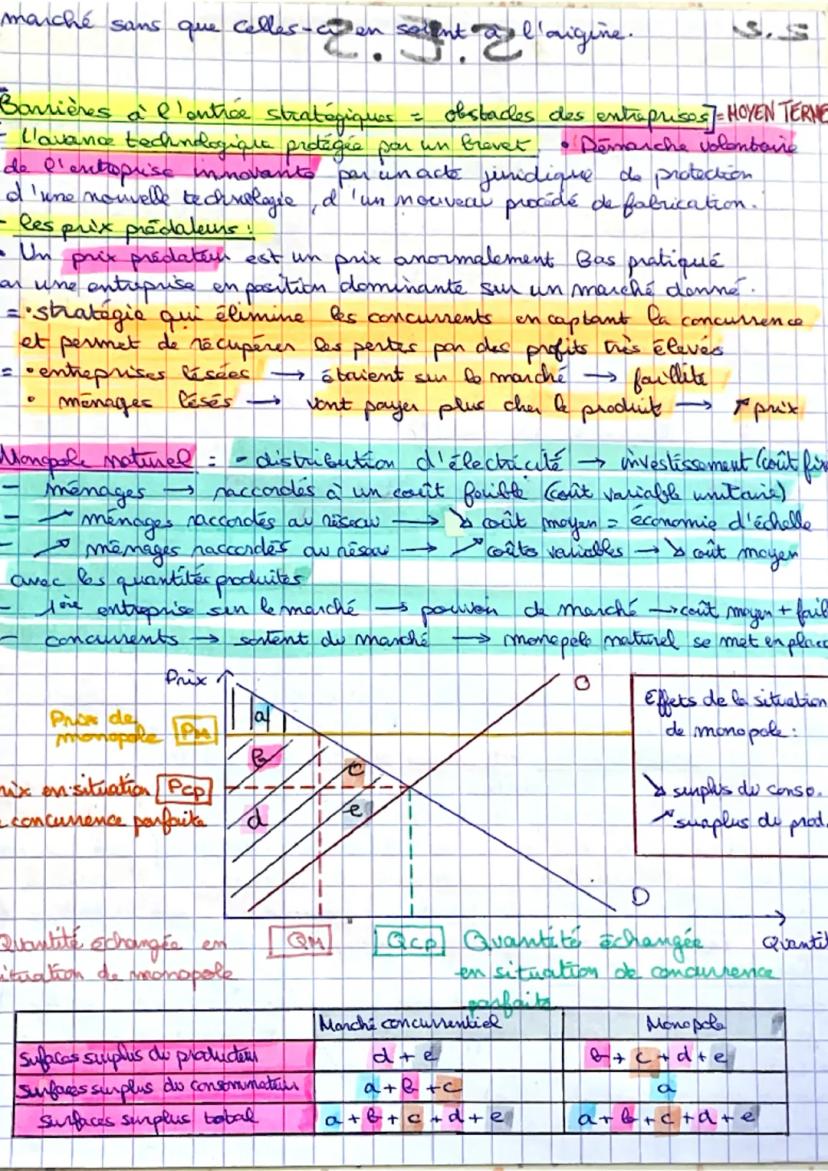 marché sans que celles-ci en soient à l'origine.
S.S
S.E.S
Barrières à l'entrée stratégiques = obstacles des entreprises] = MOYEN TERME
- L'avance technologique protégée par un brevet • Démarche volontaire
de l'entreprise innovante par un acte juridique de protection
d'une nouvelle technologie, d'un nouveau procédé de fabrication.
- les prix prédateurs :
• Un prix prédateur est un prix anormalement bas pratiqué
ar une entreprise en position dominante sur un marché donné.
= • stratégie qui élimine les concurrents en captant la concurrence
et permet de récupérer les pertes par des profits très élevés
= • entreprises lésées → étaient sur le marché → faillite
• ménages lésés → vont payer plus cher le produit → ↗ prix
Monopole naturel : - distribution d'électricité → investissement (coût fix
- ménages → raccordés à un coût faible (coût variable unitaire)
- ↗ ménages raccordés au réseau → ↘ coût moyen = économie d'échelle
- ↗ ménages raccordés au réseau → ↗ coûts variables → ↘ coût moyen
avec les quantités produites
- 1ère entreprise sur le marché → pouvoir de marché → coût moyen + faib
- concurrents → sortent du marché → monopole naturel se met en place
Prix
O
a
Prix de
monopole PM
b
c
rix en situation Pcp
e concurrence parfaite
d
e
D
Effets de la situation
de monopole :
↘ surplus du conso.
↗ surplus du prod.
Quantité échangée en
situation de monopole
QM
Qcp
Quantité échangée
en situation de concurrence
parfaite
Quantit
Marché concurrentiel
Monopole
Surfaces surplus du producteur
d + e
b + c + d + e
Surfaces surplus du consommateur
a + b + c
a
Surfaces surplus total
a + b + c + d + e
a + b + c + d + e